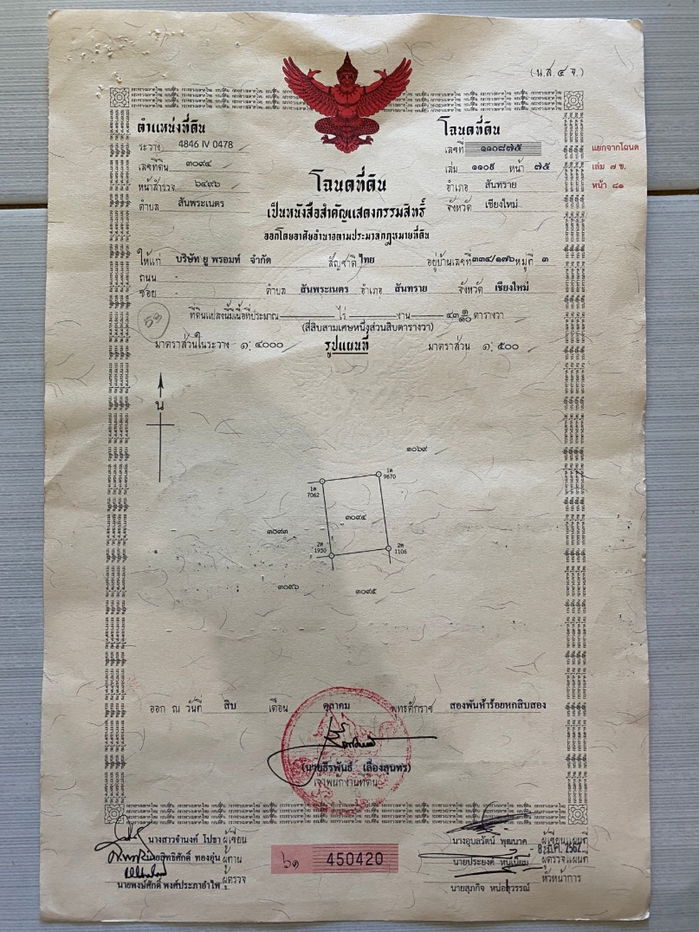 (น.ส. ๔ จ.)
ตำแหน่งที่ดิน
ระวาง 4846 IV 0478
เลขที่ดิน ๓๐๙๔
หน้าสำรวจ ๖๔๙๖
ตำบล สันพระเนตร
โฉนดที่ดิน
เลขที่ ๑๑๐๘๗๕
เล่ม ๑๑๐๙ หน้า ๗๕
อำเภอ สันทราย
จังหวัด เชียงใหม่
แยกจากโฉนด
เล่ม ๗ ข.
หน้า ๘๑
โฉนดที่ดิน
เป็นหนังสือสำคัญแสดงกรรมสิทธิ์
ออกโดยอาศัยอำนาจตามประมวลกฎหมายที่ดิน
ให้แก่ บริษัท ยู พรอมท์ จำกัด สัญชาติ ไทย อยู่บ้านเลขที่ ๓๓๔/๑๗๖ หมู่ที่ ๓
ถนน -
ซอย - ตำบล สันพระเนตร อำเภอ สันทราย จังหวัด เชียงใหม่
ที่ดินแปลงนี้มีเนื้อที่ประมาณ - ไร่ - งาน ๔๓ ๑/๑๐ ตารางวา
(สี่สิบสามเศษหนึ่งส่วนสิบตารางวา)
53
มาตราส่วนในระวาง ๑: ๔๐๐๐ รูปแผนที่ มาตราส่วน ๑: ๕๐๐
น
๓๐๖๙
1ต
7062
1ต
9670
๓๐๙๔
๓๐๙๓
2ต
1950
2ต
1106
๓๐๙๖
๓๐๙๕
ออก ณ วันที่ สิบ เดือน ตุลาคม พุทธศักราช สองพันห้าร้อยหกสิบสอง
(นายธีรพันธ์ เลื่องสุนทร)
เจ้าพนักงานที่ดิน
นางสาวจำนงค์ โปธา ผู้เขียน
นายสุทธิศักดิ์ ทองอุ่น ผู้ทาน
นายพงษ์ศักดิ์ พงศ์ประภาอำไพ ผู้ตรวจ
๖๑ 450420
นางอุบลวัฒน์ พุฒนาค ผู้เขียนแผนที่
8 ต.ค. 2562
นายประยงค์ ผู้ตรวจแผนที่
หัวหน้าการ
นายสุภกิจ หน่อสุวรรณ์